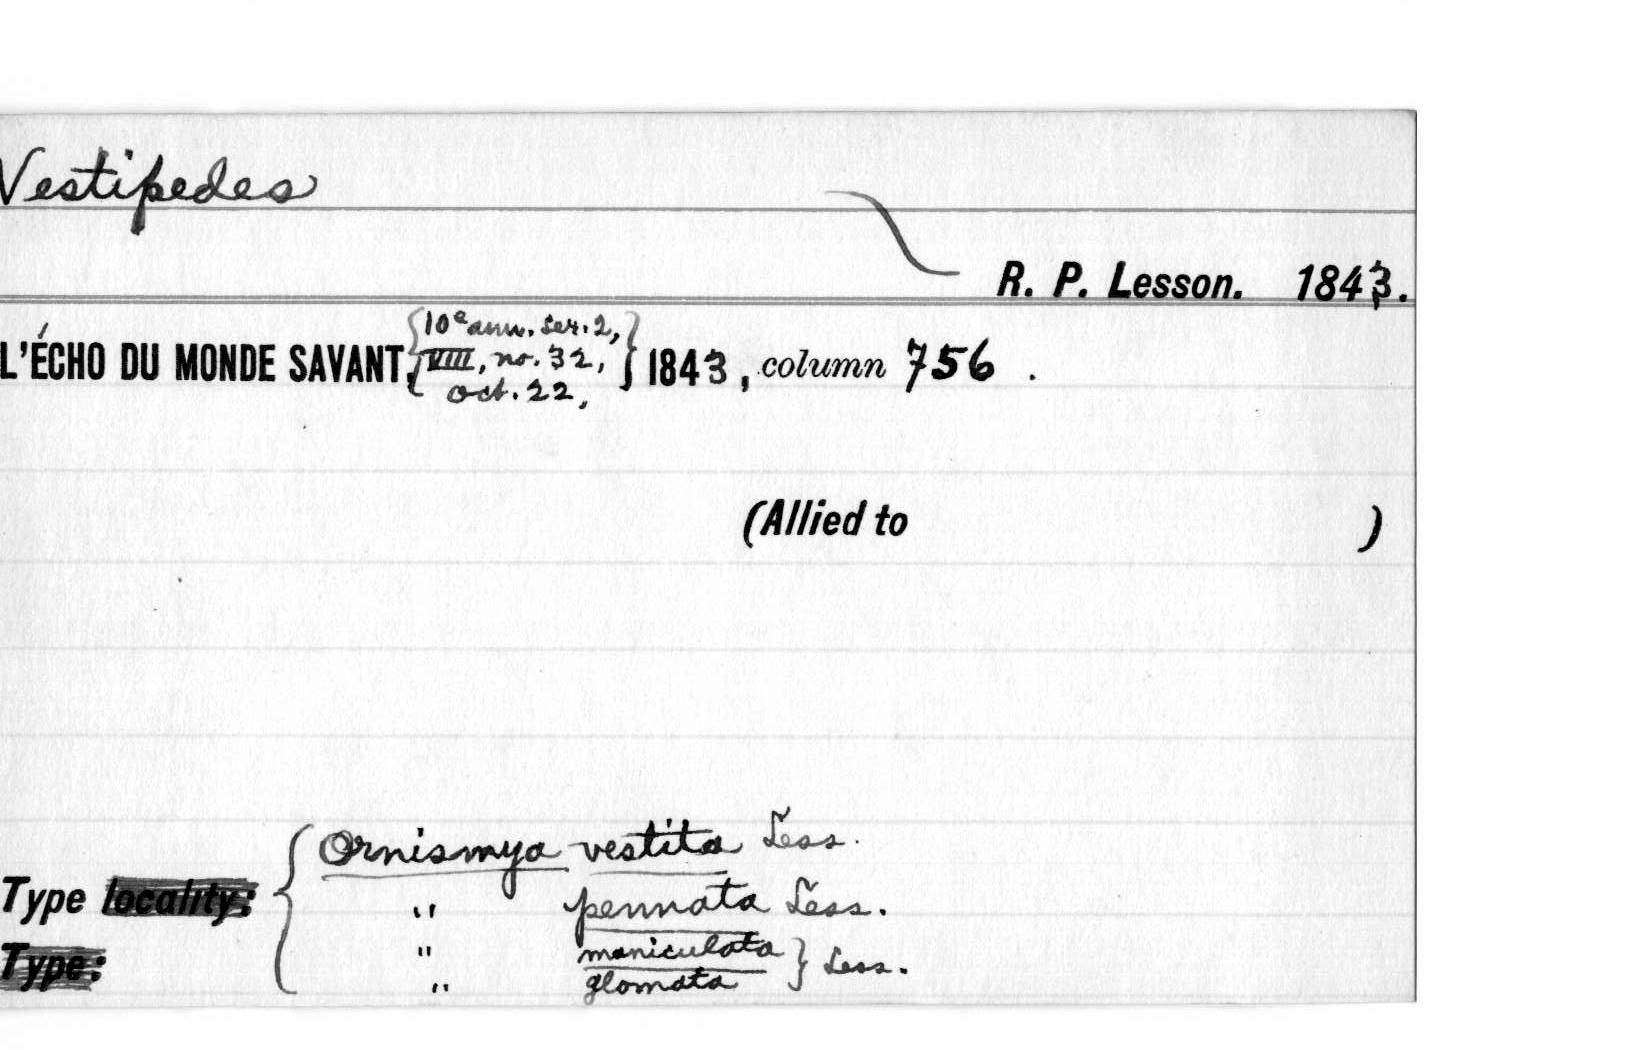 Vestipedes
R. P. Lesson. 1843.
L'ÉCHO DU MONDE SAVANT, {10e ann. Ser. 2, VIII, no. 32, Oct. 22,} 1843, column 756.
(Allied to )
Ornismya vestita Less.
Type locality: { " pennata Less.
Type: " maniculata } Less.
" glomata